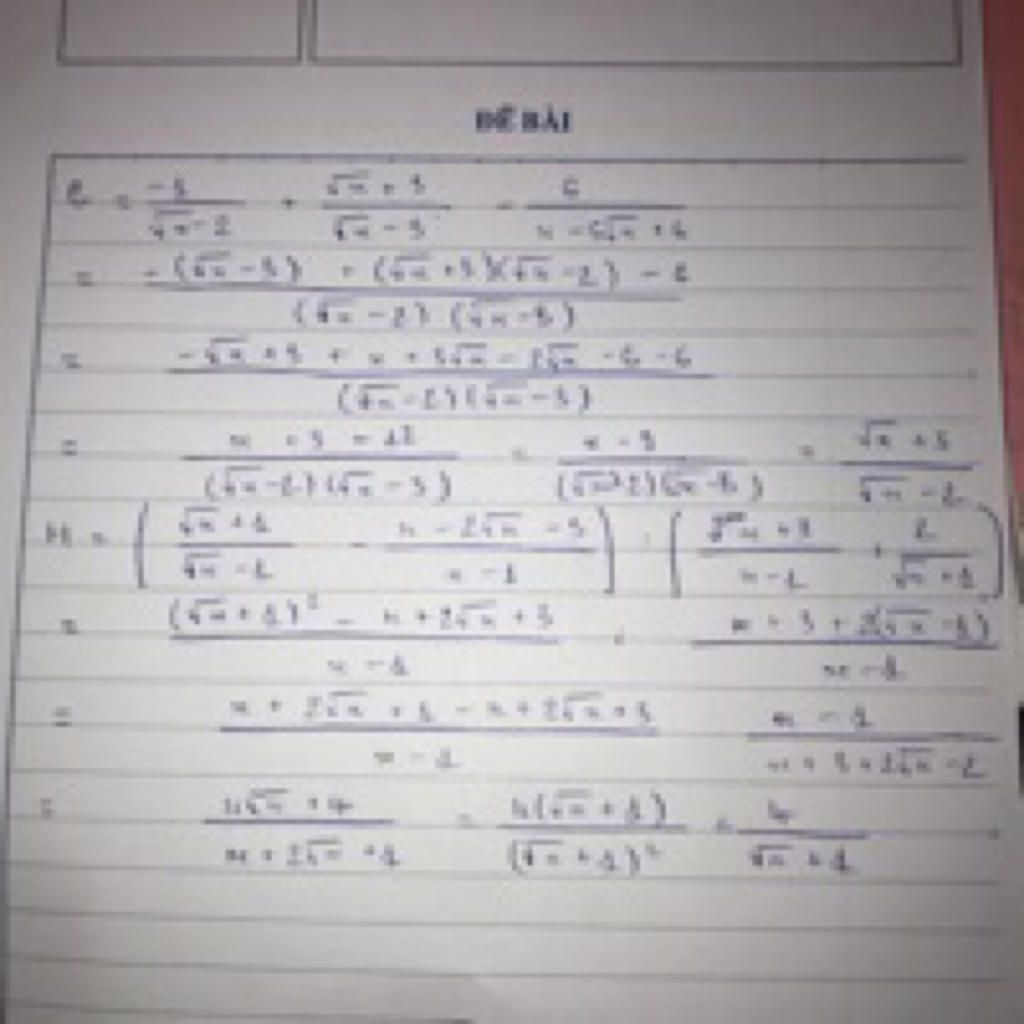 ĐỀ BÀI
= \frac{-3}{\sqrt{x}-2} + \frac{\sqrt{x}+3}{\sqrt{x}-3} - \frac{6}{x-5\sqrt{x}+6}
= \frac{-(\sqrt{x}-3) + (\sqrt{x}+3)(\sqrt{x}-2) -}{(\sqrt{x}-2)(\sqrt{x}-3)}
= \frac{-\sqrt{x}+3+x+3\sqrt{x}-2\sqrt{x}-6-6}{(\sqrt{x}-2)(\sqrt{x}-3)}
= \frac{x+3-12}{(\sqrt{x}-2)(\sqrt{x}-3)} = \frac{x-9}{(\sqrt{x}-2)(\sqrt{x}-3)} = \frac{\sqrt{x}+3}{\sqrt{x}-2}
M = \left(\frac{\sqrt{x}+1}{\sqrt{x}-1} - \frac{x-2\sqrt{x}-3}{x-1}\right) : \left(\frac{x+3}{x-1} + \frac{2}{\sqrt{x}+1}\right)
= \frac{(\sqrt{x}+1)^2-x+2\sqrt{x}+3}{x-1} : \frac{x+3+2(\sqrt{x}-1)}{x-1}
= \frac{x+2\sqrt{x}+1-x+2\sqrt{x}+3}{x-1} \frac{x-1}{x+3+2\sqrt{x}-2}
= \frac{4\sqrt{x}+4}{x+2\sqrt{x}+1} = \frac{4(\sqrt{x}+1)}{(\sqrt{x}+1)^2} = \frac{4}{\sqrt{x}+1}